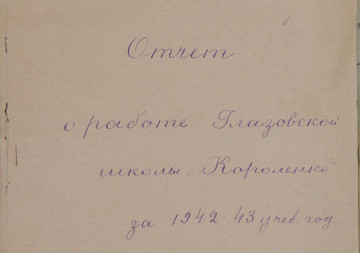 Отчет
о работе Глазовской
школы „Короленко
за 1942-43 учеб. год